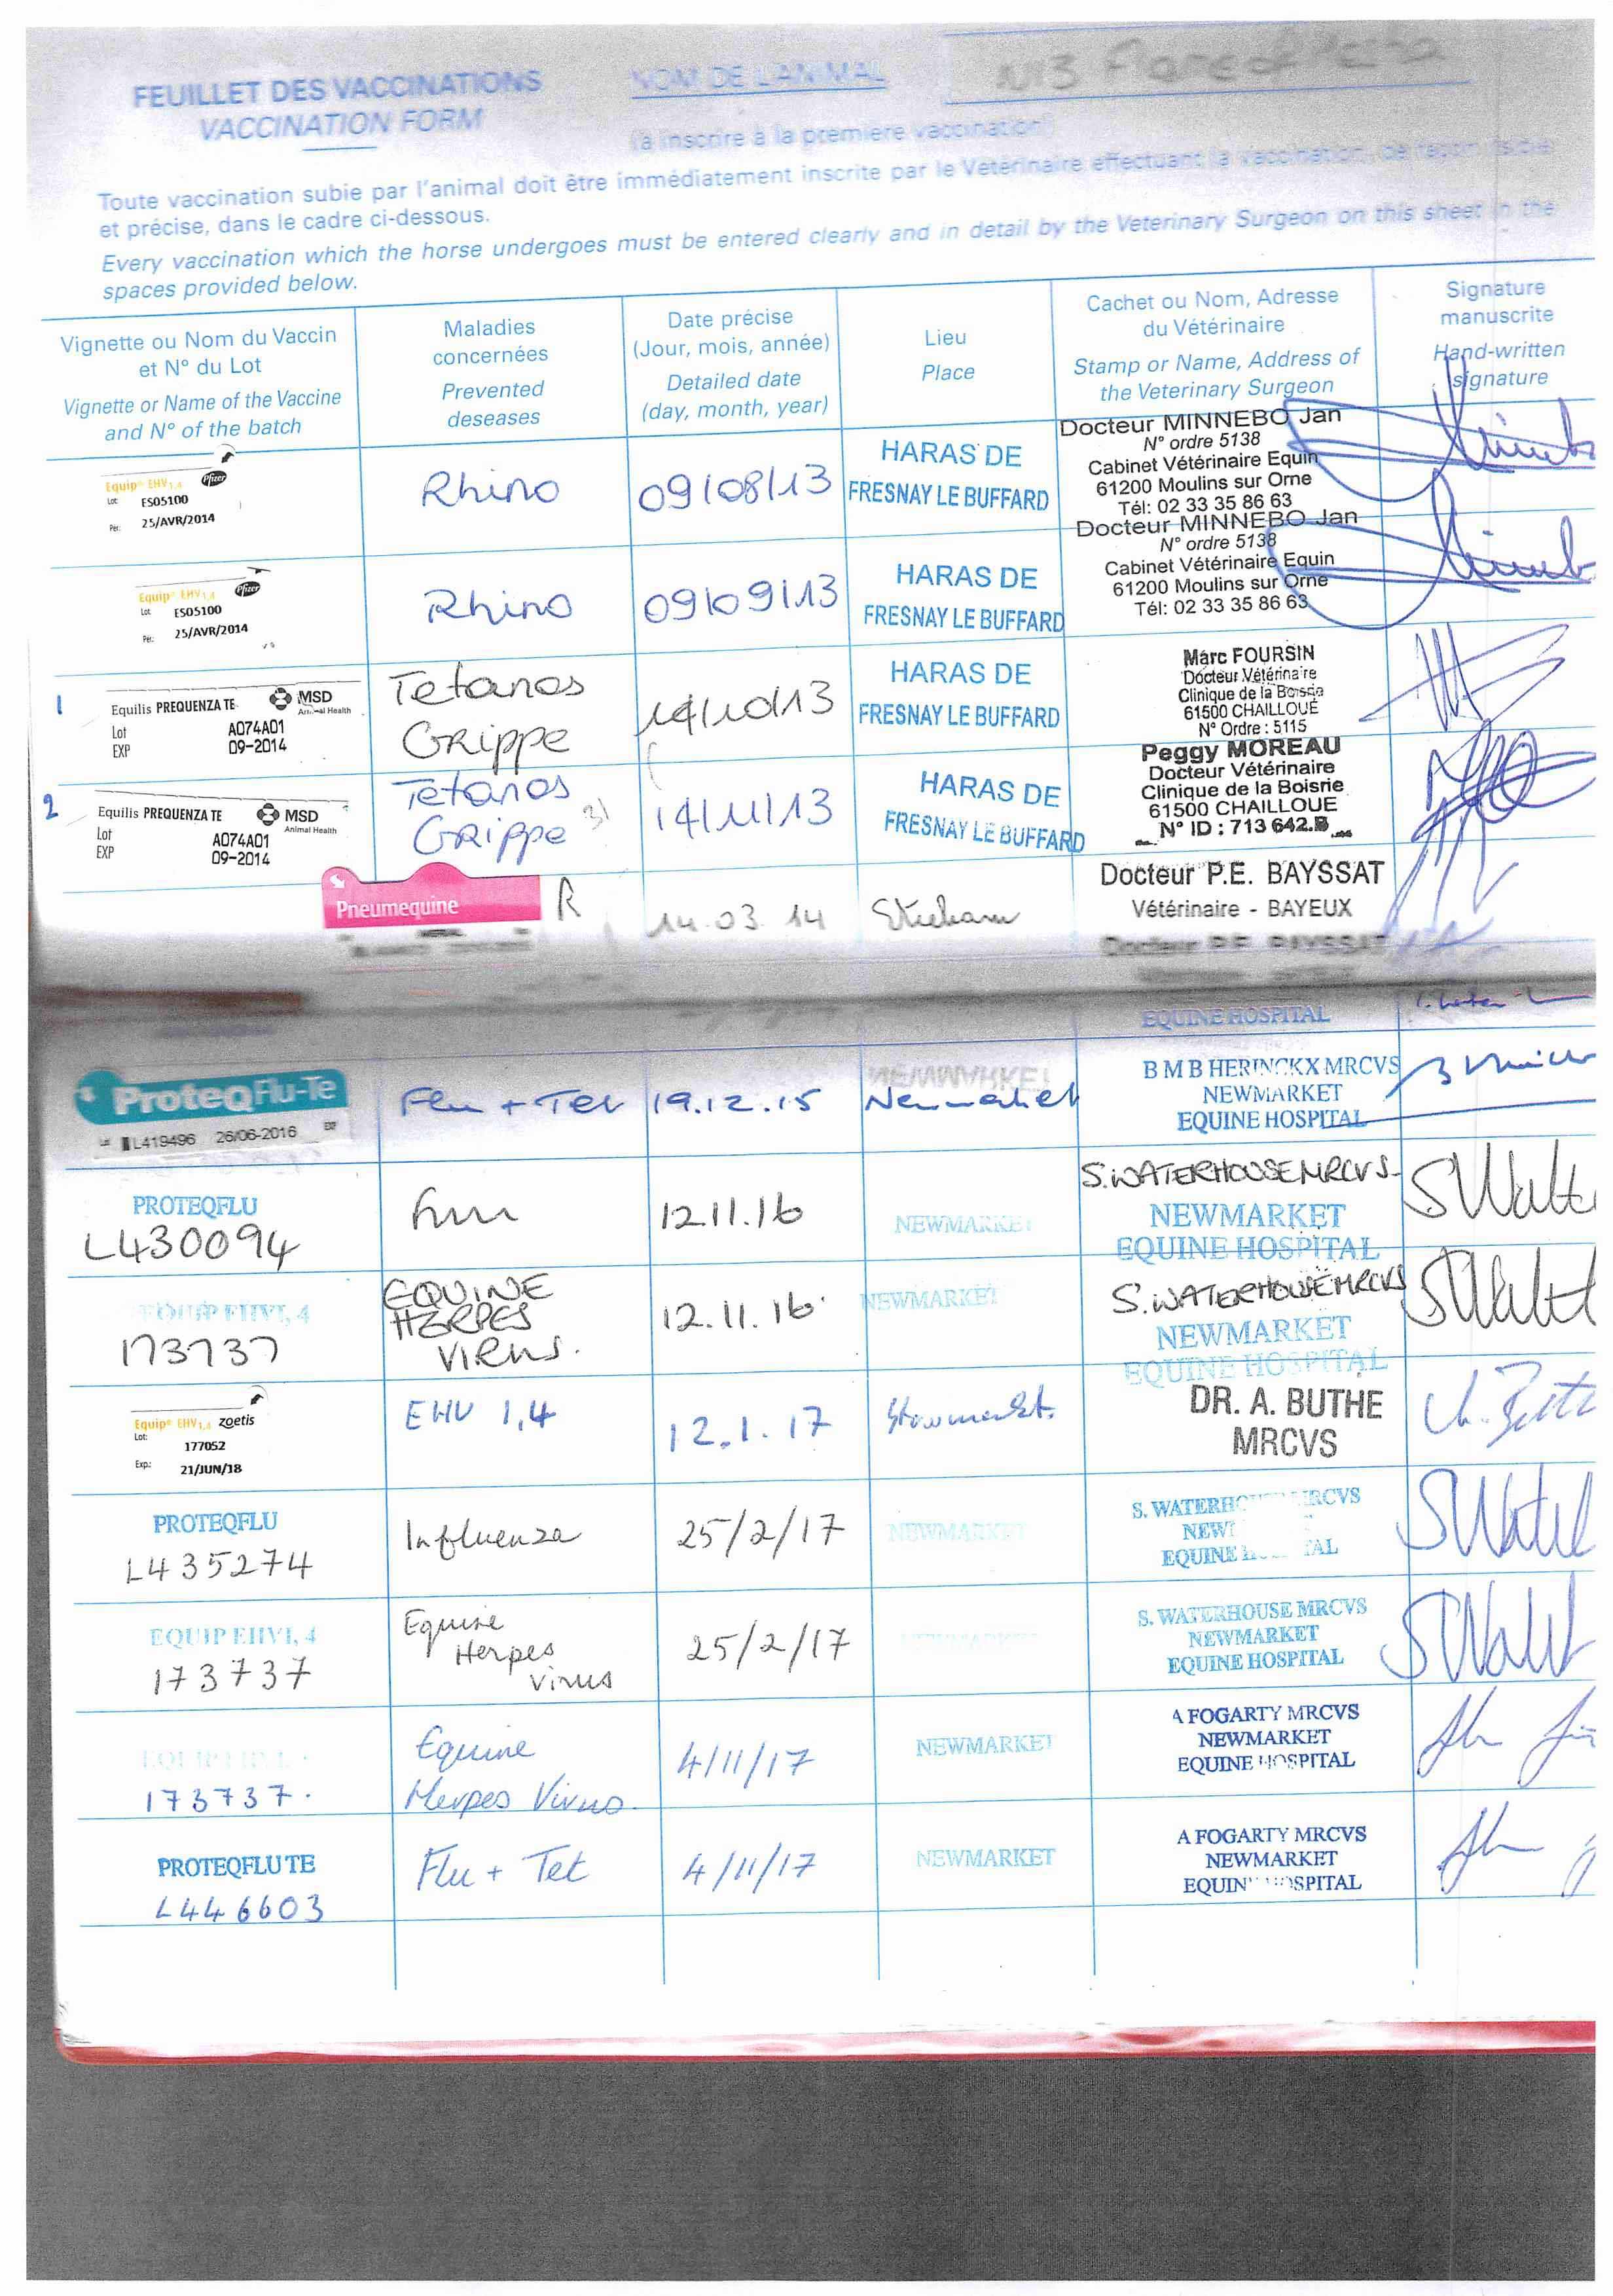 FEUILLET DES VACCINATIONS
VACCINATION FORM
NOM DE L'ANIMAL
N13
(à inscrire à la première vaccination)
Toute vaccination subie par l'animal doit être immédiatement inscrite par le Vétérinaire effectuant la vaccination, de façon lisible
et précise, dans le cadre ci-dessous.
Every vaccination which the horse undergoes must be entered clearly and in detail by the Veterinary Surgeon on this sheet in the
spaces provided below.
Vignette ou Nom du Vaccin
et N° du Lot
Vignette or Name of the Vaccine
and N° of the batch
Maladies
concernées
Prevented
deseases
Date précise
(Jour, mois, année)
Detailed date
(day, month, year)
Lieu
Place
Cachet ou Nom, Adresse
du Vétérinaire
Stamp or Name, Address of
the Veterinary Surgeon
Signature
manuscrite
Hand-written
signature
Equip® EHV1,4 Pfizer
Lot ES05100
Per: 25/AVR/2014
Rhino
09/08/13
HARAS DE
FRESNAY LE BUFFARD
Docteur MINNEBO Jan
N° ordre 5138
Cabinet Vétérinaire Equin
61200 Moulins sur Orne
Tél: 02 33 35 86 63
Equip® EHV1,4 Pfizer
Lot ES05100
Per: 25/AVR/2014
Rhino
09/09/13
HARAS DE
FRESNAY LE BUFFARD
Docteur MINNEBO Jan
N° ordre 5138
Cabinet Vétérinaire Equin
61200 Moulins sur Orne
Tél: 02 33 35 86 63
1
Equilis PREQUENZA TE MSD
Animal Health
Lot A074A01
EXP 09-2014
Tetanos
Grippe
14/10/13
HARAS DE
FRESNAY LE BUFFARD
Marc FOURSIN
Docteur Vétérinaire
Clinique de la Boisrie
61500 CHAILLOUÉ
N° Ordre : 5115
2
Equilis PREQUENZA TE MSD
Animal Health
Lot A074A01
EXP 09-2014
Tetanos
Grippe
14/11/13
HARAS DE
FRESNAY LE BUFFARD
Peggy MOREAU
Docteur Vétérinaire
Clinique de la Boisrie
61500 CHAILLOUE
N° ID : 713 642.B
Pneumequine
R
14.03.14
Docteur P.E. BAYSSAT
Vétérinaire - BAYEUX
Docteur P.E. BAYSSAT
EQUINE HOSPITAL
ProteqFlu-Te
L419496 26/06-2016
Flu + Tet
19.12.15
NEWMARKET
Newmarket
B M B HERINCKX MRCVS
NEWMARKET
EQUINE HOSPITAL
PROTEQFLU
L430094
12.11.16
NEWMARKET
S. WATERHOUSE MRCVS
NEWMARKET
EQUINE HOSPITAL
S Wate
EQUIP EHV1, 4
173737
EQUINE
HERPES
VIRUS.
12.11.16
NEWMARKET
S. WATERHOUSE MRCVS
NEWMARKET
EQUINE HOSPITAL
Equip® EHV1,4 zoetis
Lot: 177052
Exp.: 21/JUN/18
EHV 1,4
12.1.17
Stowmarket.
DR. A. BUTHE
MRCVS
PROTEQFLU
L435274
Influenza
25/2/17
NEWMARKET
S. WATERHOUSE MRCVS
NEWMARKET
EQUINE HOSPITAL
EQUIP EHV1, 4
173737
Equine
Herpes
virus
25/2/17
NEWMARKET
S. WATERHOUSE MRCVS
NEWMARKET
EQUINE HOSPITAL
173737.
Equine
Herpes Virus
4/11/17
NEWMARKET
A FOGARTY MRCVS
NEWMARKET
EQUINE HOSPITAL
PROTEQFLU TE
L446603
Flu + Tet
4/11/17
NEWMARKET
A FOGARTY MRCVS
NEWMARKET
EQUINE HOSPITAL